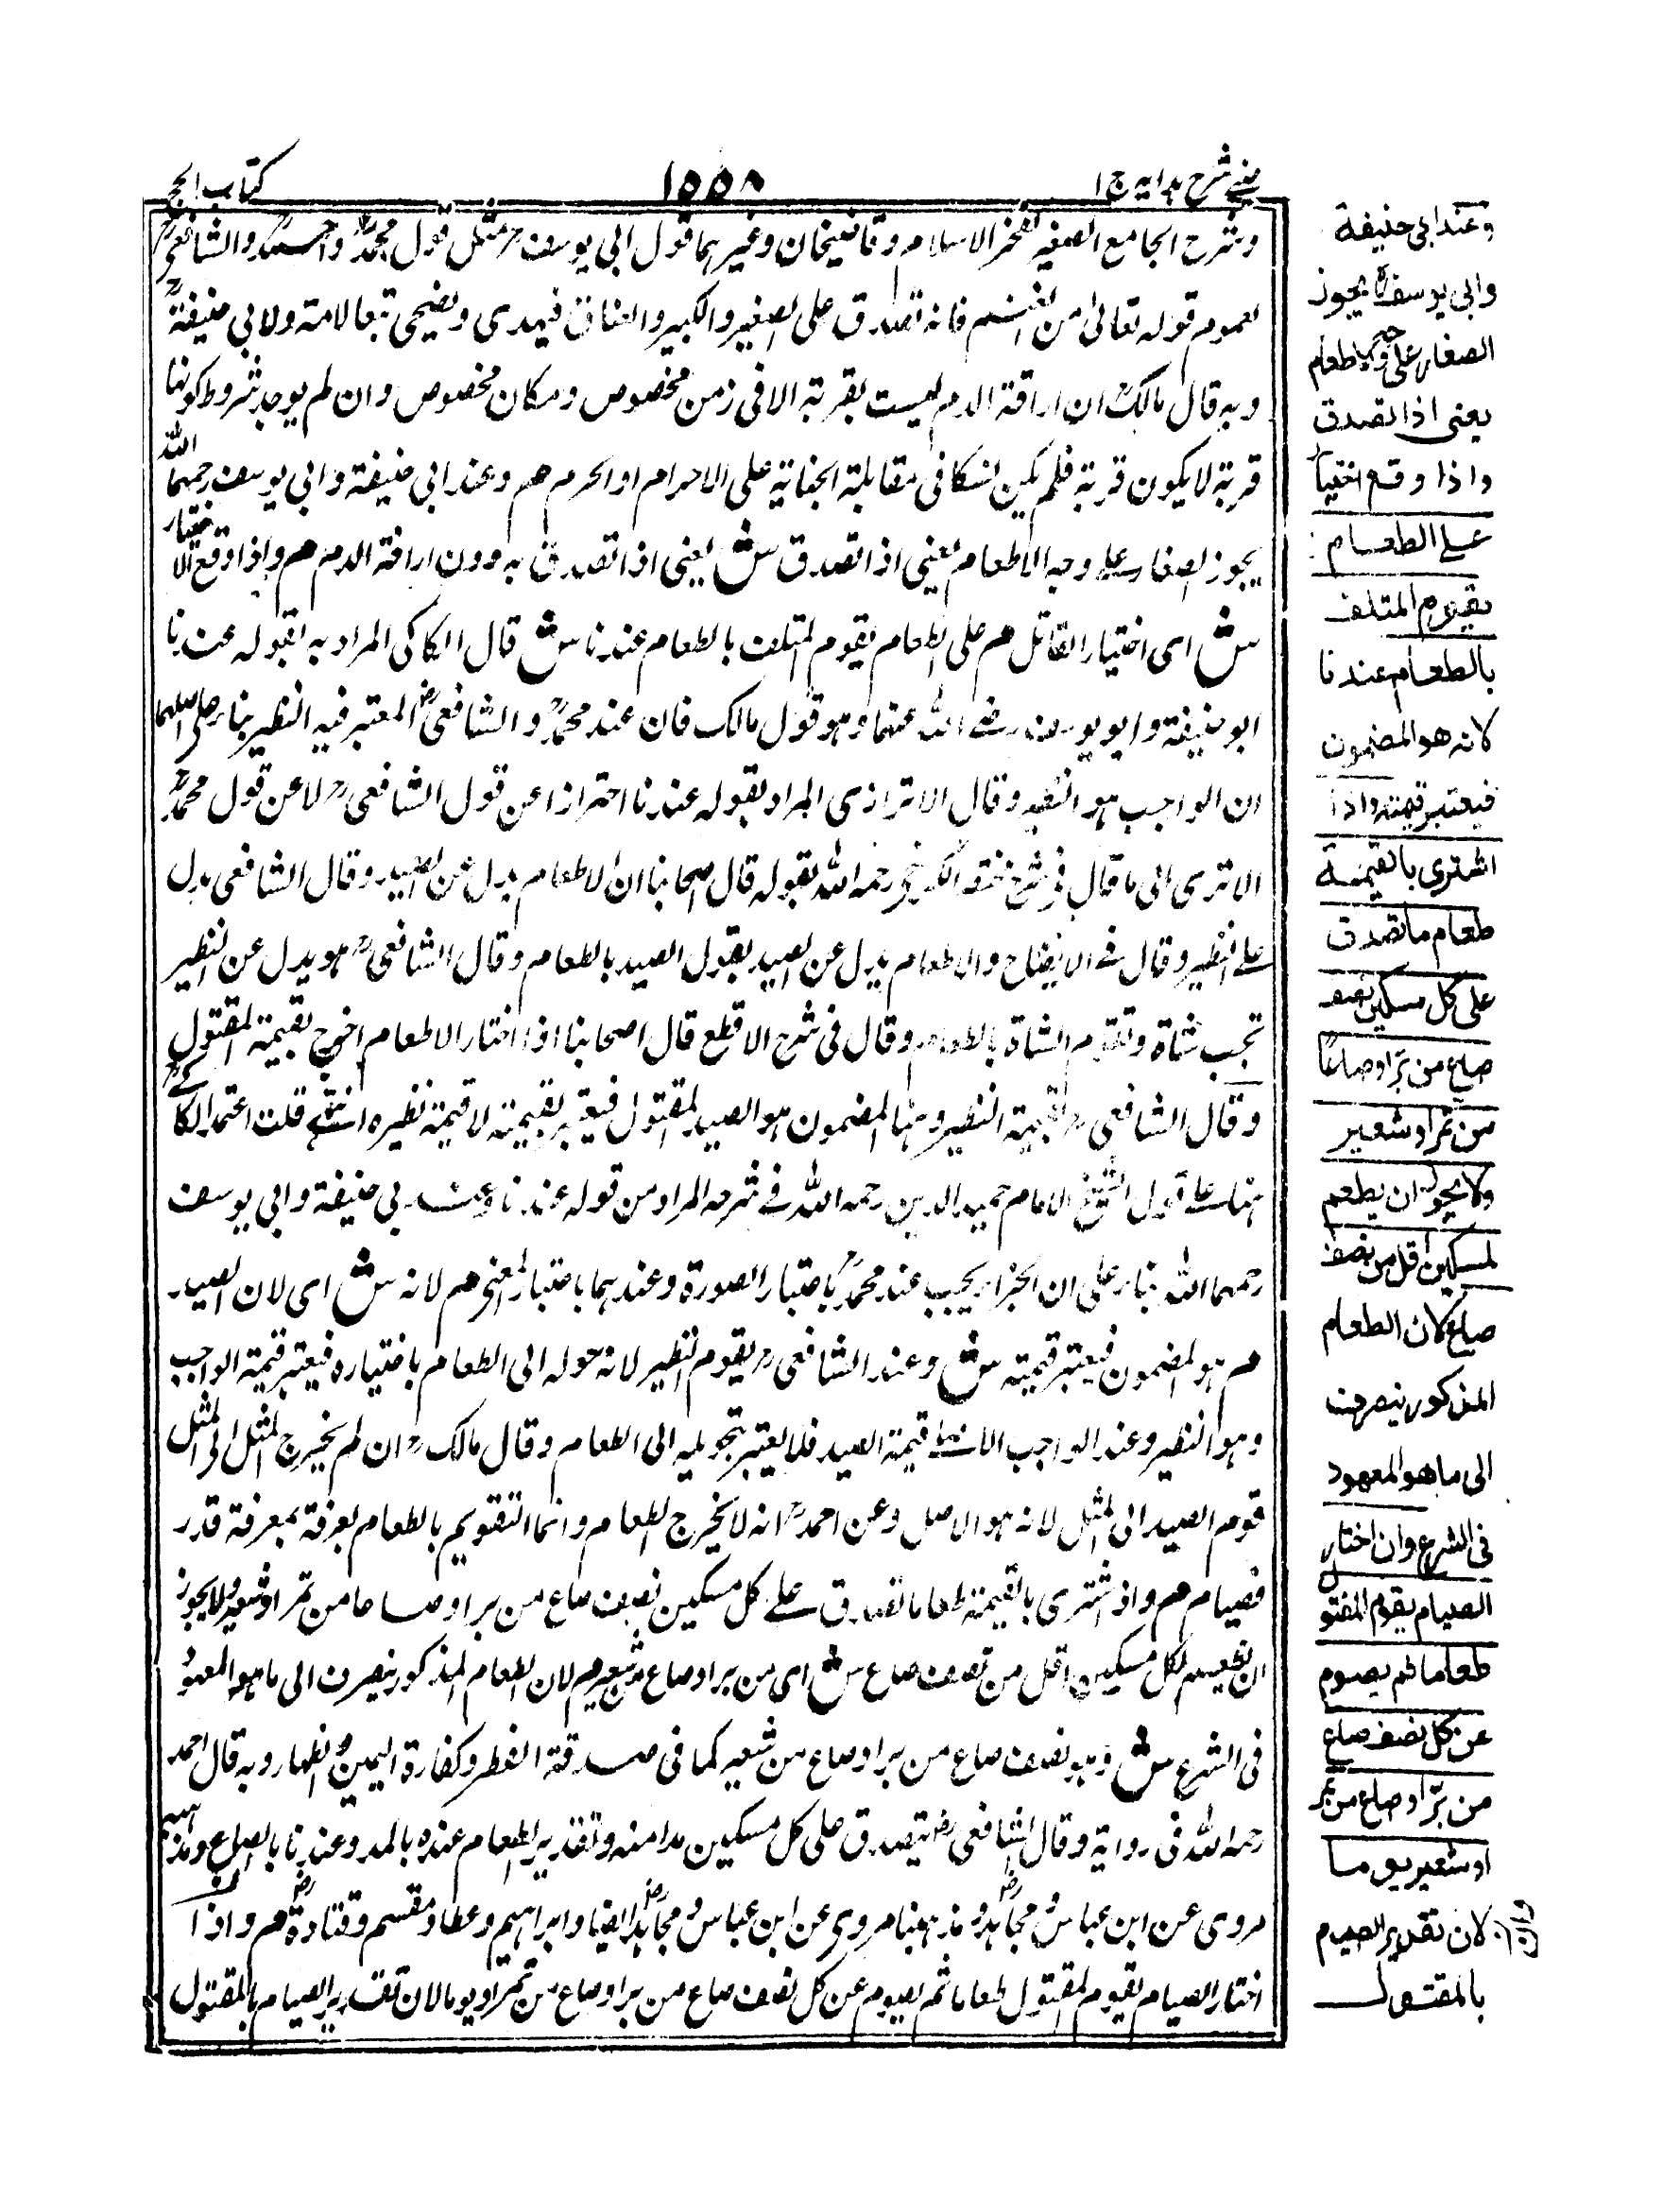 عينى شرح هدايه ج ١
١٥٥٨
كتاب الحج
وشرح الجامع الصغير لفخر الاسلام وقاضيخان وغيرهما قول ابى يوسف رح مثل قول محمد رح واحمد رح والشافعى رح
لعموم قوله تعالى من الغنم فانه تصدق على الصغير والكبير والعناق فيهدى ويضحى تبعا لامه ولابى حنيفة رح
وبه قال مالك رح ان اراقة الدم ليست بقربة الا فى زمن مخصوص ومكان مخصوص وان لم يوجد شروط كونها
قربة لا يكون قربة فلم يكن نسكا فى مقابلة الجناية على الاحرام او الحرم هم وعند ابى حنيفة وابى يوسف رحمهما الله
يجوز الصغار على وجه الاطعام يعنى اذا تصدق ش يعنى اذا تصدق به دون اراقة الدم هم واذا وقع الاختيار
ش اى اختيار القاتل هم على الطعام يقوم المتلف بالطعام عندنا ش قال الكاكى المراد به بقوله عندنا
ابو حنيفة وابو يوسف رضى الله عنهما وهو قول مالك فان عند محمد رح والشافعى رض المعتبر فيه النظير بناء على اصلهما
ان الواجب هو النظير وقال الاترازى المراد بقوله عندنا احترازا عن قول الشافعى رح لا عن قول محمد رح
الا ترى الى ما قال فى شرح مختصر الكرخى رحمه الله بقوله قال اصحابنا ان الاطعام بدل عن الصيد وقال الشافعى بدل
على النظير وقال فى الايضاح والاطعام بدل عن الصيد بقول الصيد بالطعام وقال الشافعى رح هو بدل عن النظير
تجب شاة وتقوم الشاة بالطعام وقال فى شرح الاقطع قال اصحابنا اذا اختار الاطعام اخرج بقيمة المقتول
وقال الشافعى رح بقيمة النظير وهنا المضمون هو الصيد المقتول فيعتبر بقيمته لا قيمة نظيره انتهى قلت اعتمد الكاكى
هنا على قول الشيخ الامام حميد الدين رحمه الله فى شرحه المراد من قوله عندنا وعند ابى حنيفة وابى يوسف
رحمهما الله بناء على ان الجزاء يجب عند محمد رح باعتبار الصورة وعندهما باعتبار المعنى هم لانه ش اى لان الصيد
هم هو المضمون فيعتبر قيمته ش وعند الشافعى رح يقوم النظير لانه حوله الى الطعام باختياره فيعتبر قيمة الواجب
وهو النظير وعند الواجب الاصلى قيمة الصيد فلا يعتبر بتحويله الى الطعام وقال مالك رح ان لم يخرج المثل الى المثل
قوم الصيد الى المثل لانه هو الاصل وعن احمد رح انه لا يخرج الطعام وانما التقويم بالطعام لمعرفة بمعرفة قدر
فصيام هم واذا اشترى بالقيمة طعاما تصدق على كل مسكين نصف صاع من بر او صاعا من تمر او شعير ولا يجوز
ان يطعم لكل مسكين اقل من نصف صاع ش اى من بر او صاع من شعير هم لان الطعام المذكور ينصرف الى ما هو المعهود
فى الشرع ش وهو نصف صاع من بر او صاع من شعير كما فى صدقة الفطر وكفارة اليمين والظهار وبه قال احمد
رحمه الله فى رواية وقال الشافعى رض يتصدق على كل مسكين مدا منه وتقدير الطعام عنده بالمد وعندنا بالصاع ومذهبه
مروى عن ابن عباس و مجاهد رض ومذهبنا مروى عن ابن عباس و مجاهد رض ايضا وابراهيم وعطاء ومقسم وقتادة رض هم واذا
اختار الصيام يقوم المقتول طعاما ثم يصوم عن كل نصف صاع من بر او صاع من تمر او يوما لان تقدير الصيام بالمقتول
وعند ابى حنيفة
وابى يوسف رح يجوز
الصغار على وجه الاطعام
يعنى اذا تصدق
واذا وقع اختيار
على الطعام
يقوم المتلف
بالطعام عندنا
لانه هو المضمون
فيعتبر قيمته واذا
اشترى بالقيمة
طعاما تصدق
على كل مسكين نصف
صاع من بر او صاعا
من تمر او شعير
ولا يجوز ان يطعم
لمسكين اقل من نصف
صاع لان الطعام
المذكور ينصرف
الى ما هو المعهود
فى الشرع وان اختار
الصيام يقوم المقتول
طعاما ثم يصوم
عن كل نصف صاع
من بر او صاع من تمر
او شعير يوما
لان تقدير الصيام
بالمقتول